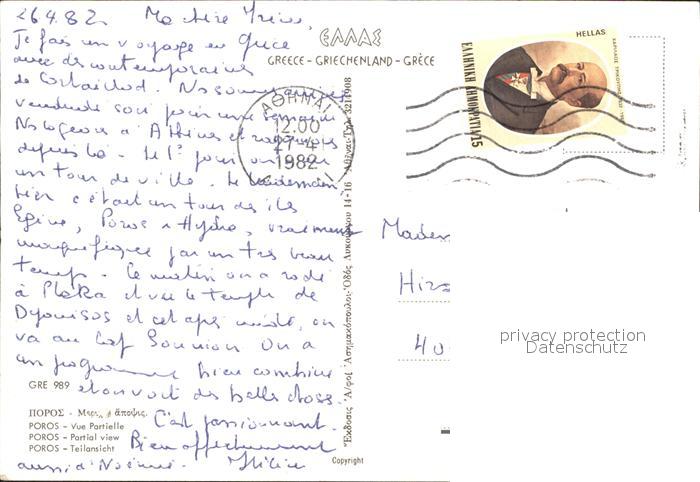 26.4.82. Ma chère Irène,
Je fais un voyage en Grèce
avec des contemporaines
de Cortaillod. Nous sommes arrivées
vendredi soir pour une semaine
Nous logeons à Athènes et rayonnons
depuis là. Le 1er jour on a fait
un tour de ville. Le lendemain,
hier c'était un tour des îles
Egine, Poros et Hydra, vraiment
magnifique par un très beau
temps. Ce matin on a rôdé
à Plaka et vu le temple de
Dyonisos et cet après midi, on
va au Cap Sounion On a
un programme bien combiné
et on voit des belles choses.
C'est passionnant.
Bien affectueusement
aussi à Noémie.
ΕΛΛΑΣ
GREECE - GRIECHENLAND - GRÈCE
HELLAS
ΕΛΛΗΝΙΚΗ ΔΗΜΟΚΡΑΤΙΑ 15
ΑΘΗΝΑΙ
12.00
27.4
1982
Madem
Hir
40
privacy protection
Datenschutz
GRE 989
ΠΟΡΟΣ - Μερική άποψις.
POROS - Vue Partielle
POROS - Partial view
POROS - Teilansicht
Copyright
Έκδοσις Ἀ/φοί Ἀσημακόπουλοι - Ὁδὸς Λυκούργου 14-16 Ἀθῆναι - Τηλ. 3211908